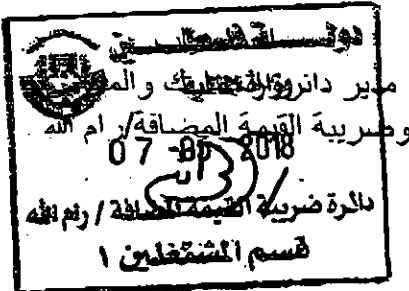 دولة فلسطين
مدير دائرة الجمارك والمكوس
وضريبة القيمة المضافة/رام الله
07 -05- 2018
دائرة ضريبة القيمة المضافة / رام الله
قسم المشتغلين ١